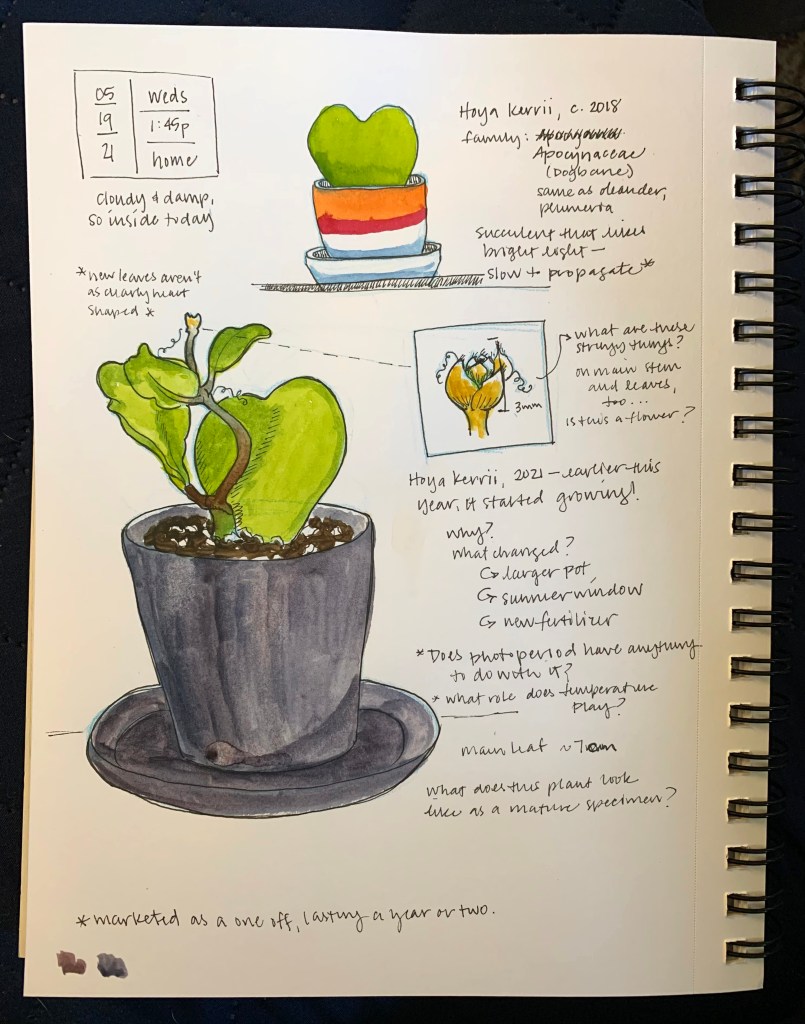 05 Weds
19 1:45p
21 home
cloudy & damp,
so inside today
Hoya kerrii, c. 2018
family:
Apocynaceae
(Dogbane)
same as oleander,
plumeria
succulent that likes
bright light —
slow to propagate*
*new leaves aren't
as clearly heart
shaped *
3mm
what are these
stringy things?
on main stem
and leaves,
too...
is this a flower?
Hoya kerrii, 2021 — earlier this
year, it started growing!
why?
what changed?
↳ larger pot
↳ sunnier window
↳ new fertilizer
*Does photoperiod have anything
to do with it?
* what role does temperature
play?
main leaf ~7cm
What does this plant look
like as a mature specimen?
*marketed as a one off, lasting a year or two.